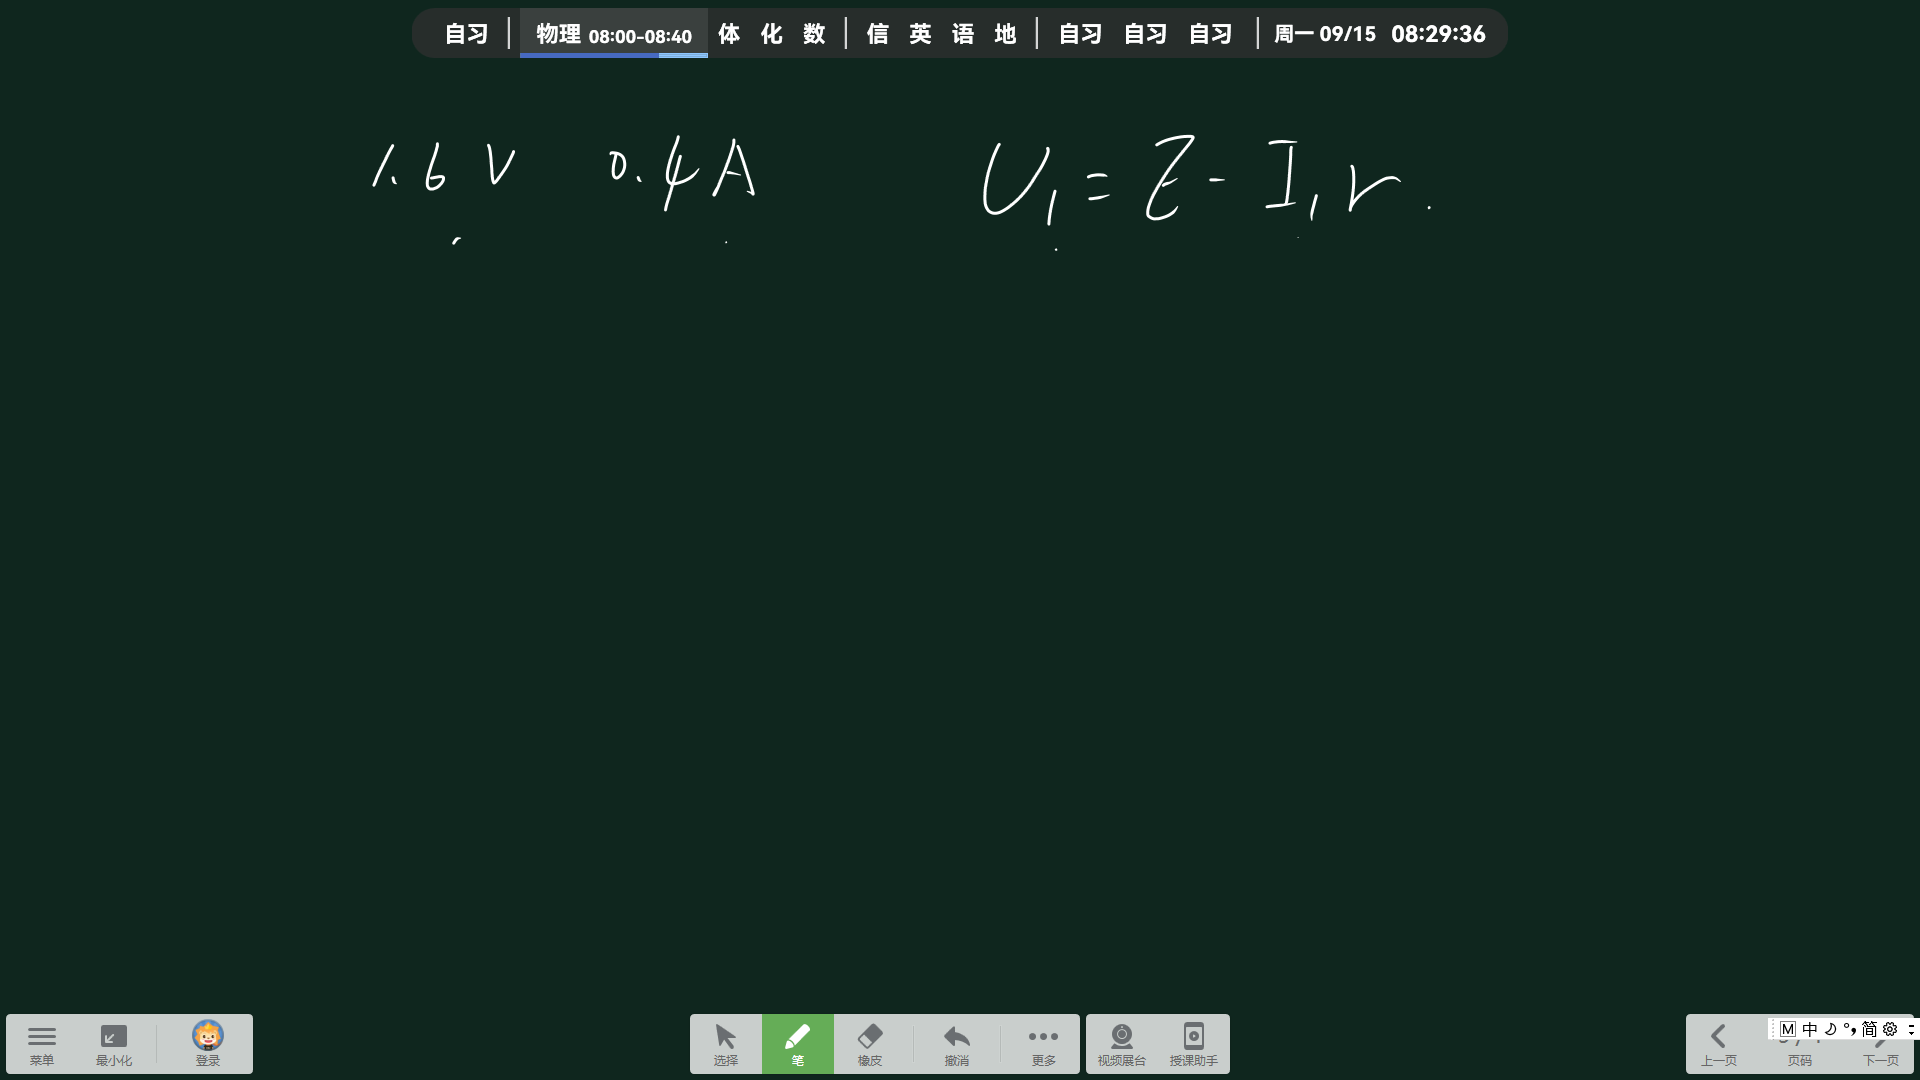 自习 物理 08:00-08:40 体 化 数 信 英 语 地 自习 自习 自习 周一 09/15 08:29:36
1.6 V 0.4 A U₁ = E - I₁ r.
菜单 最小化 登录 选择 笔 橡皮 撤消 更多 视频展台 授课助手 上一页 页码 下一页
M 中 简